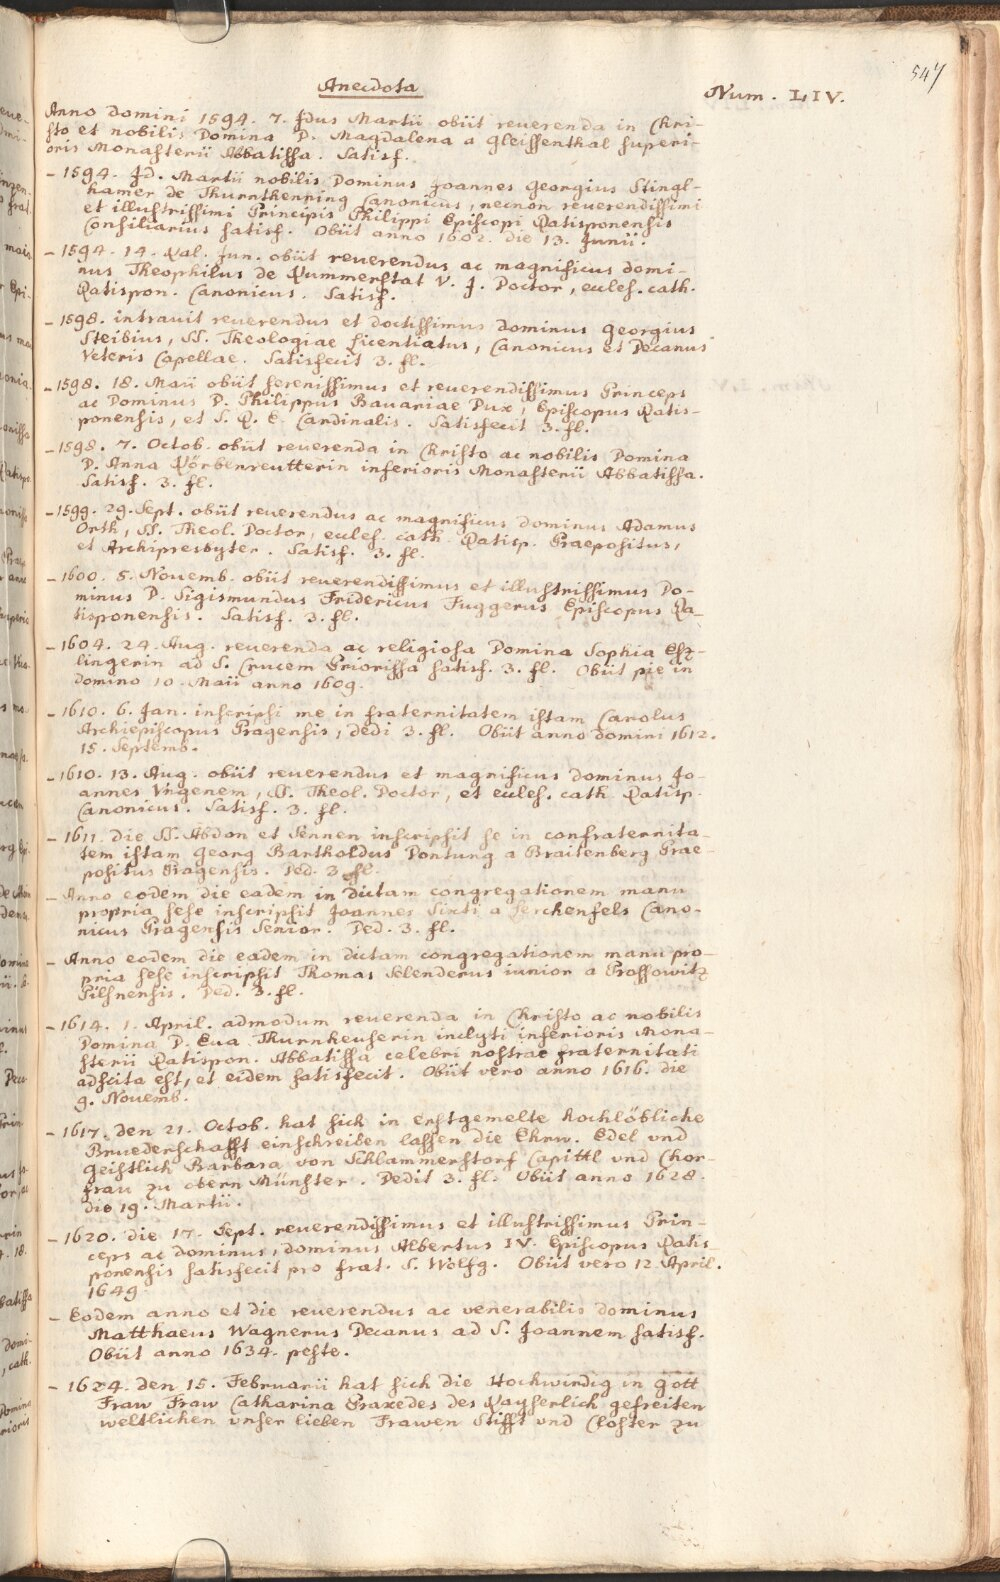 547
Anecdota
Num. LIV.
Anno Domini 1594. 7. Idus Martii obiit reuerenda in Chri-
sto et nobilis Domina D. Magdalena a Gleissenthal superi-
oris Monasterii Abbatissa. Satisf.
- 1594. Id. Martii nobilis Dominus Joannes Georgius Stingl-
hamer de Thurnthenning Canonicus, necnon reuerendissimi
et illustrissimi Principis Philippi Episcopi Ratisponensis
Consiliarius satisf. Obiit anno 1602. die 13. Junii.
- 1594. 14. Kal. Jun. obiit reuerendus ac magnificus domi-
nus Theophilus de Kummerstat V. J. Doctor, eccles. cath.
Ratispon. Canonicus. Satisf.
- 1598. intrauit reuerendus et doctissimus Dominus Georgius
Steibius, SS. Theologiae Licentiatus, Canonicus et Decanus
Veteris Capellae. Satisfecit 3. fl.
- 1598. 18. Maii obiit serenissimus et reuerendissimus Princeps
ac Dominus D. Philippus Bauariae Dux, Episcopus Ratis-
ponensis, et S. R. E. Cardinalis. Satisfecit 3. fl.
- 1598. 7. Octob. obiit reuerenda in Christo ac nobilis Domina
D. Anna Körbenreutterin inferioris Monasterii Abbatissa.
Satisf. 3. fl.
- 1599. 29. Sept. obiit reuerendus ac magnificus dominus Adamus
Orth, SS. Theol. Doctor, eccles. cath. Ratisp. Praepositus,
et Archipresbyter. Satisf. 3. fl.
- 1600. 5. Nouemb. obiit reuerendissimus et illustrissimus Do-
minus D. Sigismundus Fridericus Fuggerus Episcopus Ra-
tisponensis. Satisf. 3. fl.
- 1604. 24. Aug. reuerenda ac religiosa Domina Sophia Esz-
lingerin ad S. Crucem Priorissa satisf. 3. fl. Obiit pie in
Domino 10. Maii anno 1609.
- 1610. 6. Jan. inscripsi me in fraternitatem istam Carolus
Archiepiscopus Pragensis, dedi 3. fl. Obiit anno domini 1612.
15. Septemb.
- 1610. 13. Aug. obiit reuerendus et magnificus dominus Jo-
annes Vngenem, SS. Theol. Doctor, et eccles. cath Ratisp.
Canonicus. Satisf. 3. fl.
- 1611. die SS. Abdon et Sennen inscripsit se in confraternita-
tem istam Georg Bartholdus Pontung a Braitenberg Prae-
positus Pragensis. Ded. 3 fl.
- Anno eodem die eadem in dictam congregationem manu
propria sese inscripsit Joannes Sixti a Lerchenfels Cano-
nicus Pragensis Senior. Ded. 3. fl.
- Anno eodem die eadem in dictam congregationem manu pro-
pria sese inscripsit Thomas Selenderus iunior a Prossowitz
Pilsnensis. Ded. 3. fl.
- 1614. 1. April. admodum reuerenda in Christo ac nobilis
Domina D. Eua Thurnheuserin inclyti inferioris Mona-
sterii Ratispon. Abbatissa celebri nostrae fraternitati
adscita est, et eidem satisfecit. Obiit vero anno 1616. die
9. Nouemb.
- 1617. den 21. Octob. hat sich in erstgemelte hochlöbliche
Bruederschafft einschreiben lassen die Ehrw. Edel vnd
Geistlich Barbara von Schlammerstorf Capittl vnd Chor-
frau zu obern Münster. Dedit 3. fl. Obiit anno 1628.
die 19. Martii.
- 1620. die 17. Sept. reuerendissimus et illustrissimus Prin-
ceps ac dominus, dominus Albertus IV. Episcopus Ratis-
ponensis satisfecit pro frat. S. Wolfg. Obiit vero 12 April.
1649.
- Eodem anno et die reuerendus ac venerabilis dominus
Matthaeus Wagnerus Decanus ad S. Joannem satisf.
Obiit anno 1634. peste.
- 1624. den 15. Februarii hat sich die Hochwirdig in gott
Fraw Fraw Catharina Praxedes des Kayserlich gefreiten
weltlichen vnser lieben Frawen Stifft vnd Closter zu